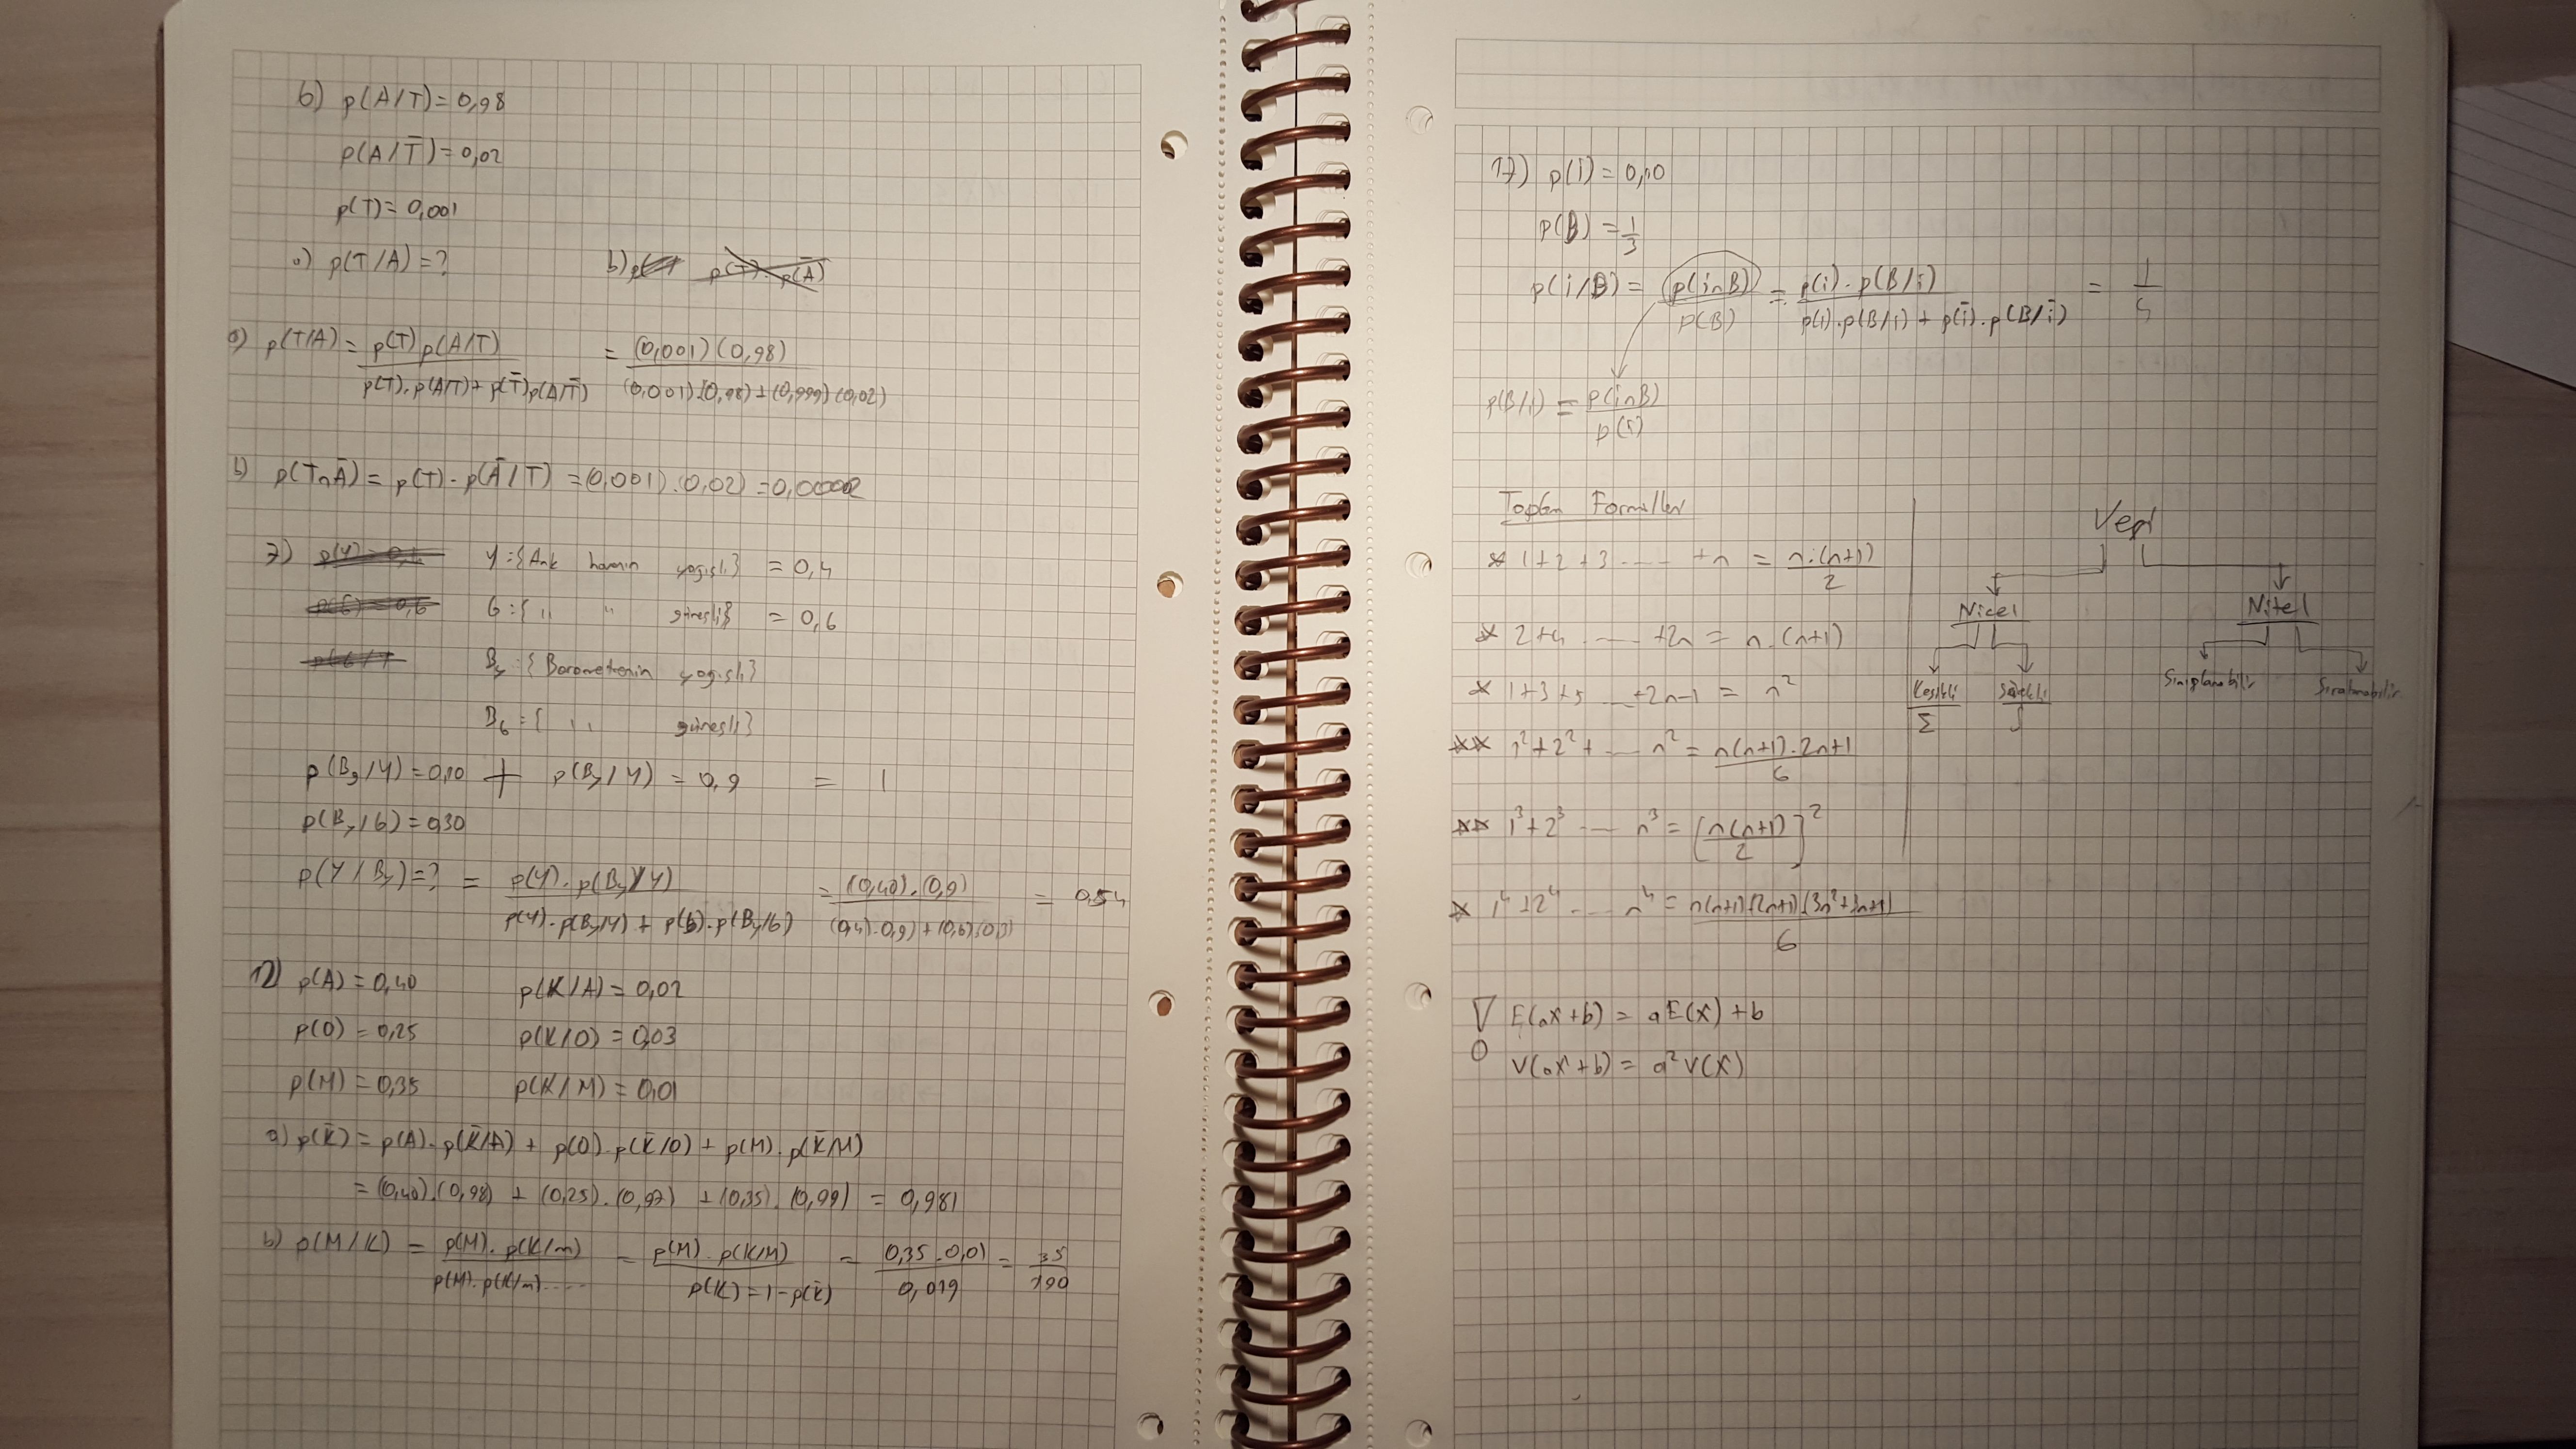 6) p(A/T) = 0,98
p(A/T̄) = 0,02
p(T) = 0,001
a) p(T/A) = ? b)
a) p(T/A) = p(T) p(A/T) / p(T).p(A/T) + p(T̄)p(A/T̄) = (0,001)(0,98) / (0,001).(0,98) + (0,999)(0,02)
b) p(T∩Ā) = p(T) . p(Ā/T) = (0,001).(0,02) = 0,00002
7) Y : {Ank havanın yağışlı} = 0,4
G : { ,, " güneşli} = 0,6
By : {Barometrenin yağışlı}
BG = { ,, güneşli}
p(Bg/Y) = 0,10 + p(By/Y) = 0,9 = 1
p(By/G) = 0,30
p(Y/By) = ? = p(Y).p(By/Y) / p(Y).p(By/Y) + p(G).p(By/G) = (0,40).(0,9) / (0,4).0,9) + (0,6)(0,3) = 0,54
12) p(A) = 0,40 p(K/A) = 0,02
p(O) = 0,25 p(K/O) = 0,03
p(M) = 0,35 p(K/M) = 0,01
a) p(K̄) = p(A).p(K̄/A) + p(O).p(K̄/O) + p(M).p(K̄/M)
= (0,40).(0,98) + (0,25).(0,97) + (0,35).(0,99) = 0,981
b) p(M/K) = p(M).p(K/m) / p(M).p(K/m)..... = p(M).p(K/M) / p(K) = 1-p(K̄) = 0,35.0,01 / 0,019 = 35/190
17) p(i) = 0,10
p(B) = 1/3
p(i/B) = p(i∩B) / p(B) = p(i).p(B/i) / p(i).p(B/i) + p(ī).p(B/ī) =
p(B/i) = p(i∩B) / p(i)
Toplam Formüller
* 1+2+3 ..... +n = n.(n+1) / 2
* 2+4 ..... +2n = n.(n+1)
* 1+3+5 ... +2n-1 = n²
** 1²+2²+ ..... n² = n(n+1).2n+1 / 6
** 1³+2³ ..... n³ = [n(n+1) / 2]²
* 1⁴+2⁴ ..... n⁴ = n(n+1)(2n+1)(3n²+3n+1) / 6
Veri
Nicel Nitel
Kesikli Sürekli Sınıflanabilir Sıralanabilir
Σ ∫
! E(ax+b) = aE(x)+b
V(ax+b) = a²V(x)